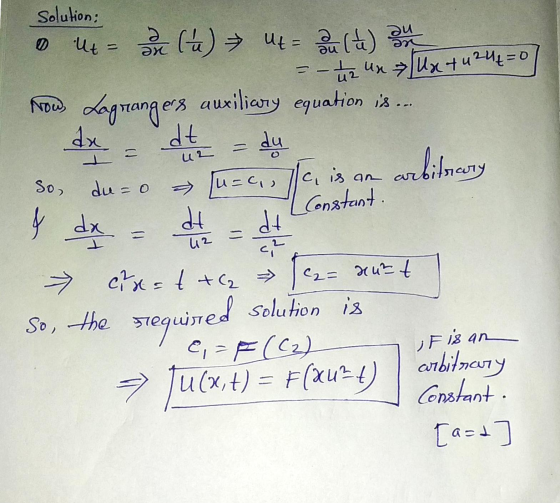 Solution:
① u_t = ∂/∂x (1/u) ⇒ u_t = ∂/∂u (1/u) ∂u/∂x
= - 1/u² u_x ⇒ u_x + u² u_t = 0
Now, Lagrangers auxiliary equation is ...
dx/1 = dt/u² = du/0
So, du = 0 ⇒ u = c₁, [c₁ is an arbitrary
Constant.
& dx/1 = dt/u² = dt/c₁²
⇒ c₁²x = t + c₂ ⇒ c₂ = xu² - t
So, the required solution is
c₁ = F(c₂)
⇒ u(x,t) = F(xu² - t)
, F is an
arbitrary
Constant.
[a=1]